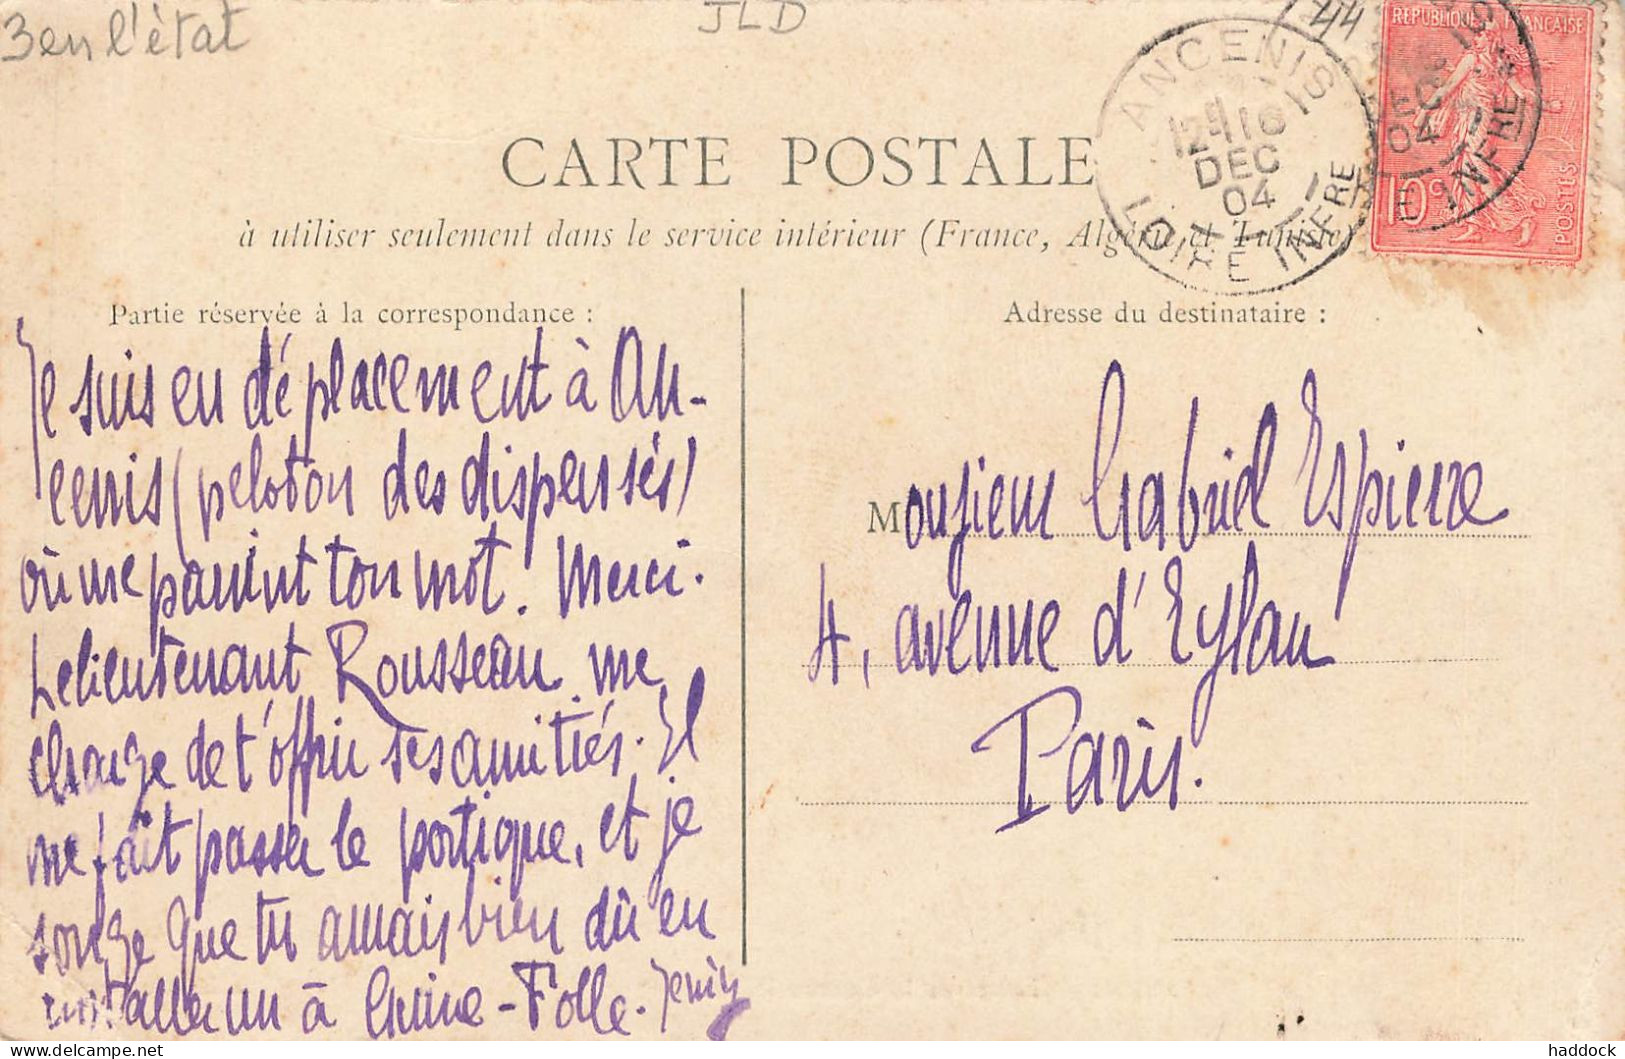 3 en l'état
JLD
44
RÉPUBLIQUE FRANÇAISE
10c
POSTES
ANCENIS
DEC
04
LOIRE INFRE
CARTE POSTALE
à utiliser seulement dans le service intérieur (France, Algérie et Tunisie)
Partie réservée à la correspondance :
Je suis en déplacement à An-
cenis (peloton des dispensés)
où me parvint ton mot. Merci.
Le lieutenant Rousseau me
charge de t'offrir ses amitiés. Il
me fait passer le portique, et je
songe que tu aurais bien dû en
installer un à Chaine-Folle.
Adresse du destinataire :
Monsieur Gabriel Espierre
4, avenue d'Eylau
Paris.
haddock